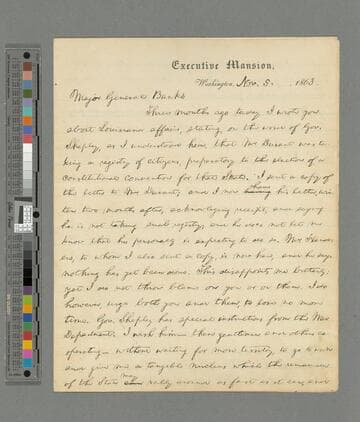 Executive Mansion,
Washington, Nov. 5. , 1863.
Major General Banks
Three months ago to-day I wrote you
about Louisiana affairs, stating, on the word of Gov.
Shepley, as I understood him, that Mr Durant was ta-
king a registry of citizens, preparatory to the election of a
constitutional convention for that State. I sent a copy of
the letter to Mr Durant; and I now have his letter, writ-
ten two months after, acknowledging receipt, and saying
he is not taking such registry; and he does not let me
know that he personally is expecting to do so. Mr Flan-
ders, to whom I also sent a copy, is now here, and he says
nothing has yet been done. This disappoints me bitterly;
yet I do not throw blame on you or on them. I do
however, urge both you and them, to lose no more
time. Gov. Shepley has special instructions from the War
Department. I wish him— these gentlemen and others co-
operating— without waiting for more territory, to go to work
and give me a tangible nucleus which the remainder
of the State may rally around as fast as it can, and